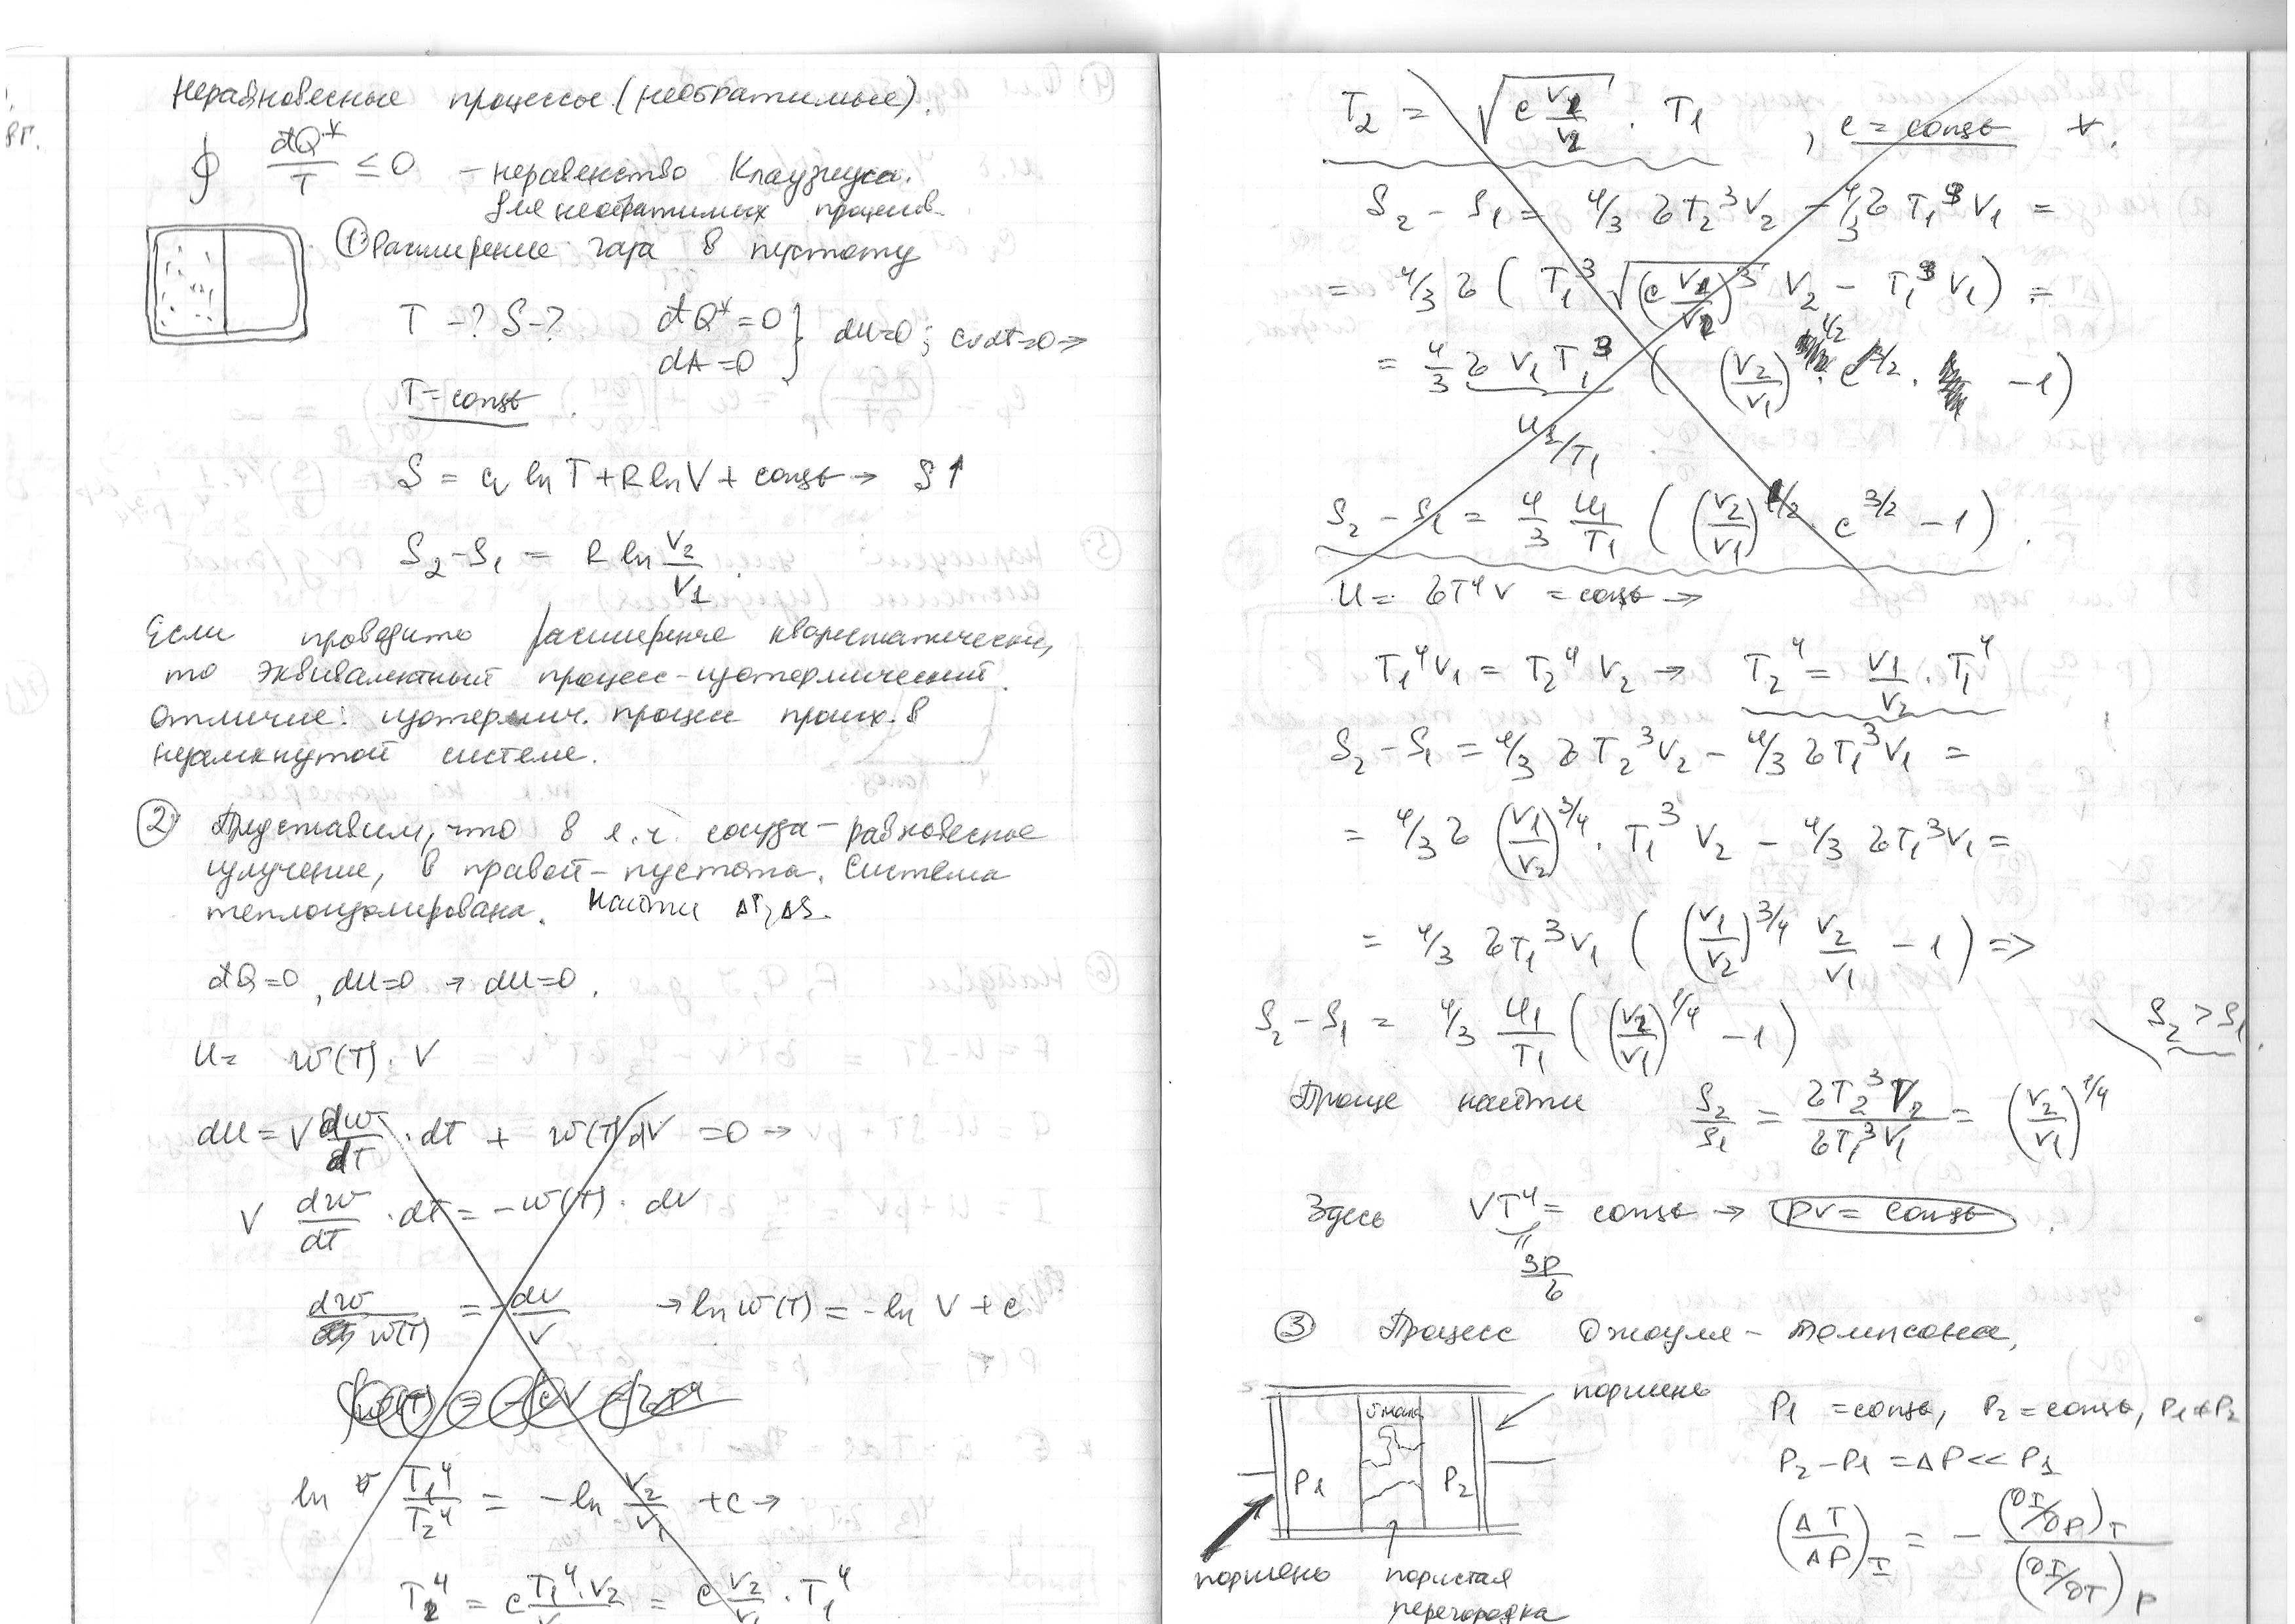 Неравновесные процессы (необратимые).
∮ đQ*/T ≤ 0 – неравенство Клаузиуса.
для необратимых процессов
① Расширение газа в пустоту
T-? S-? đQ*=0 } dU=0; cvdT=0 →
dA=0
T=const.
S = cv ln T + R ln V + const → S↑
S₂-S₁ = R ln V₂/V₁.
Если проводить расширение квазистатически,
то эквивалентный процесс - изотермический.
Отличие: изотермич. процесс происх. в
незамкнутой системе.
② Представим, что в л.ч. сосуда – равновесное
излучение, в правой – пустота. Система
теплоизолирована. Найти ΔT, ΔS.
đQ=0, dU=0 → dU=0.
U= w(T)·V
dU = V dw/dT · dT + w(T)dV = 0 →
V dw/dT · dT = -w(T)·dV
dw/w(T) = -dV/V → ln w(T) = -ln V + c
ln T₁⁴/T₂⁴ = -ln V₂/V₁ + c →
T₂⁴ = c T₁⁴·V₂/V₁ = c V₂/V₁ · T₁⁴
T₂ = √(c V₁/V₂) · T₁, c = const
S₂ - S₁ = 4/3 σT₂³V₂ - 4/3 σT₁³V₁ =
= 4/3 σ (T₁³ √(c V₁/V₂)³ V₂ - T₁³V₁) =
= 4/3 σ V₁T₁³ ((V₂/V₁)^1/2 · c^3/2 · -1)
U₁/T₁
S₂ - S₁ = 4/3 U₁/T₁ ((V₂/V₁)^1/2 · c^3/2 - 1).
U = σT⁴V = const →
T₁⁴V₁ = T₂⁴V₂ → T₂⁴ = V₁/V₂ · T₁⁴
S₂ - S₁ = 4/3 σT₂³V₂ - 4/3 σT₁³V₁ =
= 4/3 σ (V₁/V₂)^3/4 · T₁³ V₂ - 4/3 σT₁³V₁ =
= 4/3 σT₁³V₁ ((V₁/V₂)^3/4 V₂/V₁ - 1) =>
S₂ - S₁ = 4/3 U₁/T₁ ((V₂/V₁)^1/4 - 1) S₂ > S₁.
Проще найти S₂/S₁ = σT₂³V₂/σT₁³V₁ = (V₂/V₁)^1/4
Здесь VT⁴ = const → PV = const.
3P/σ
③ Процесс Джоуля – Томпсона.
поршень
P₁ P₂
P₁ = const, P₂ = const, P₁≠P₂
P₂-P₁ = ΔP << P₁
(ΔT/ΔP)_I = - (∂I/∂P)_T / (∂I/∂T)_P
поршень
пористая
перегородка